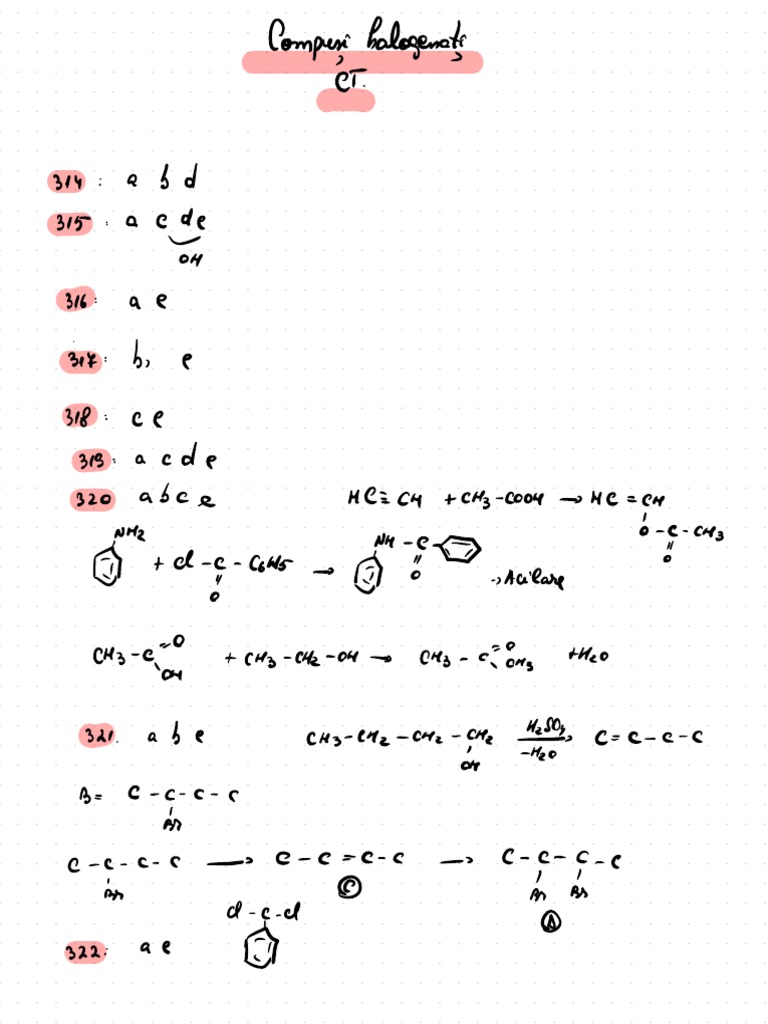 Compuși halogenați
CT.
314: a b d
315: a c de
OH
316: a e
317: b, e
318: c e
319: a c d e
320 a b c e HC≡CH + CH3-COOH → HC=CH
O-C-CH3
O
NH2 NH-C-
+ Cl-C-C6H5 →
O O → Acilare
CH3-C=O + CH3-CH2-OH → CH3-C=O +H2O
OH OCH3
321. a b e CH3-CH2-CH2-CH2 H2SO4 C=C-C-C
OH -H2O
B= C-C-C-C
Br
C-C-C-C → C-C=C-C → C-C-C-C
Br C Br Br
A
Cl-C-Cl
322: a e